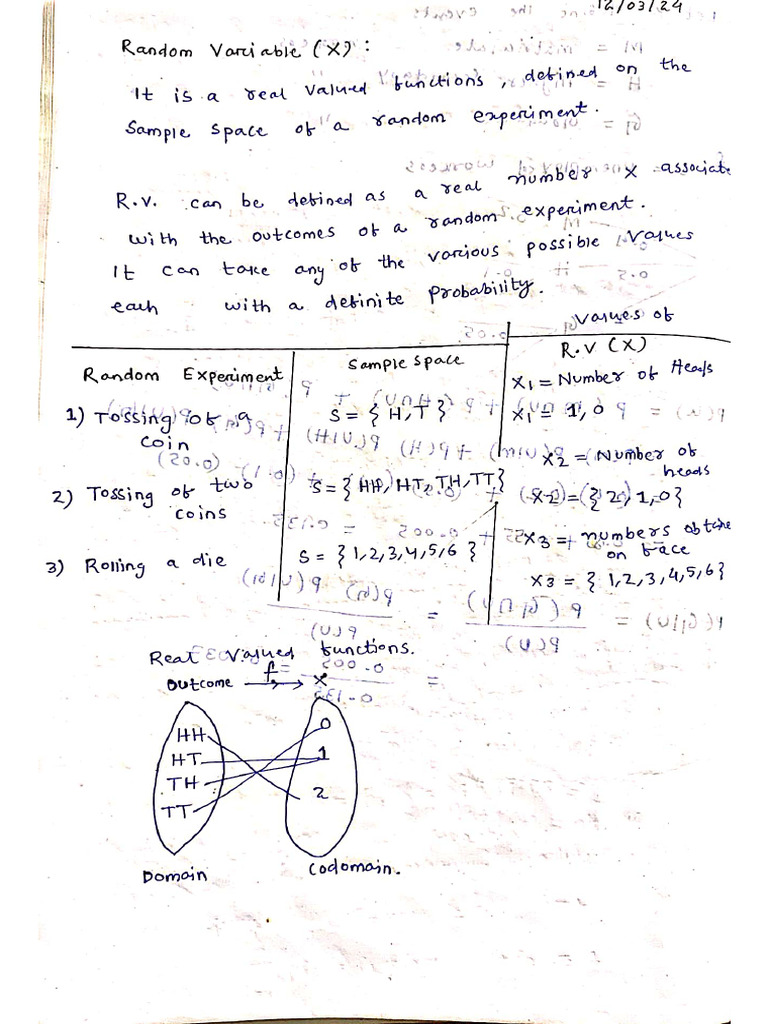 12/03/24
Random Variable (X) :
It is a real valued functions, defined on the
Sample space of a random experiment.
R.V. can be defined as a real number X associate
with the outcomes of a random experiment.
It can take any of the various possible values
each with a definite probability.
Random Experiment
Sample Space
Values of
R.V (X)
1) Tossing of a
coin
S = { H, T }
X1 = Number of Heads
X1 = 1, 0
2) Tossing of two
coins
S = { HH, HT, TH, TT }
X2 = Number of
heads
X2 = { 2, 1, 0 }
3) Rolling a die
S = { 1, 2, 3, 4, 5, 6 }
X3 = numbers obtaine
on face
X3 = { 1, 2, 3, 4, 5, 6 }
Real valued functions.
Outcome f X
HH
HT
TH
TT
0
1
2
Domain
Codomain.